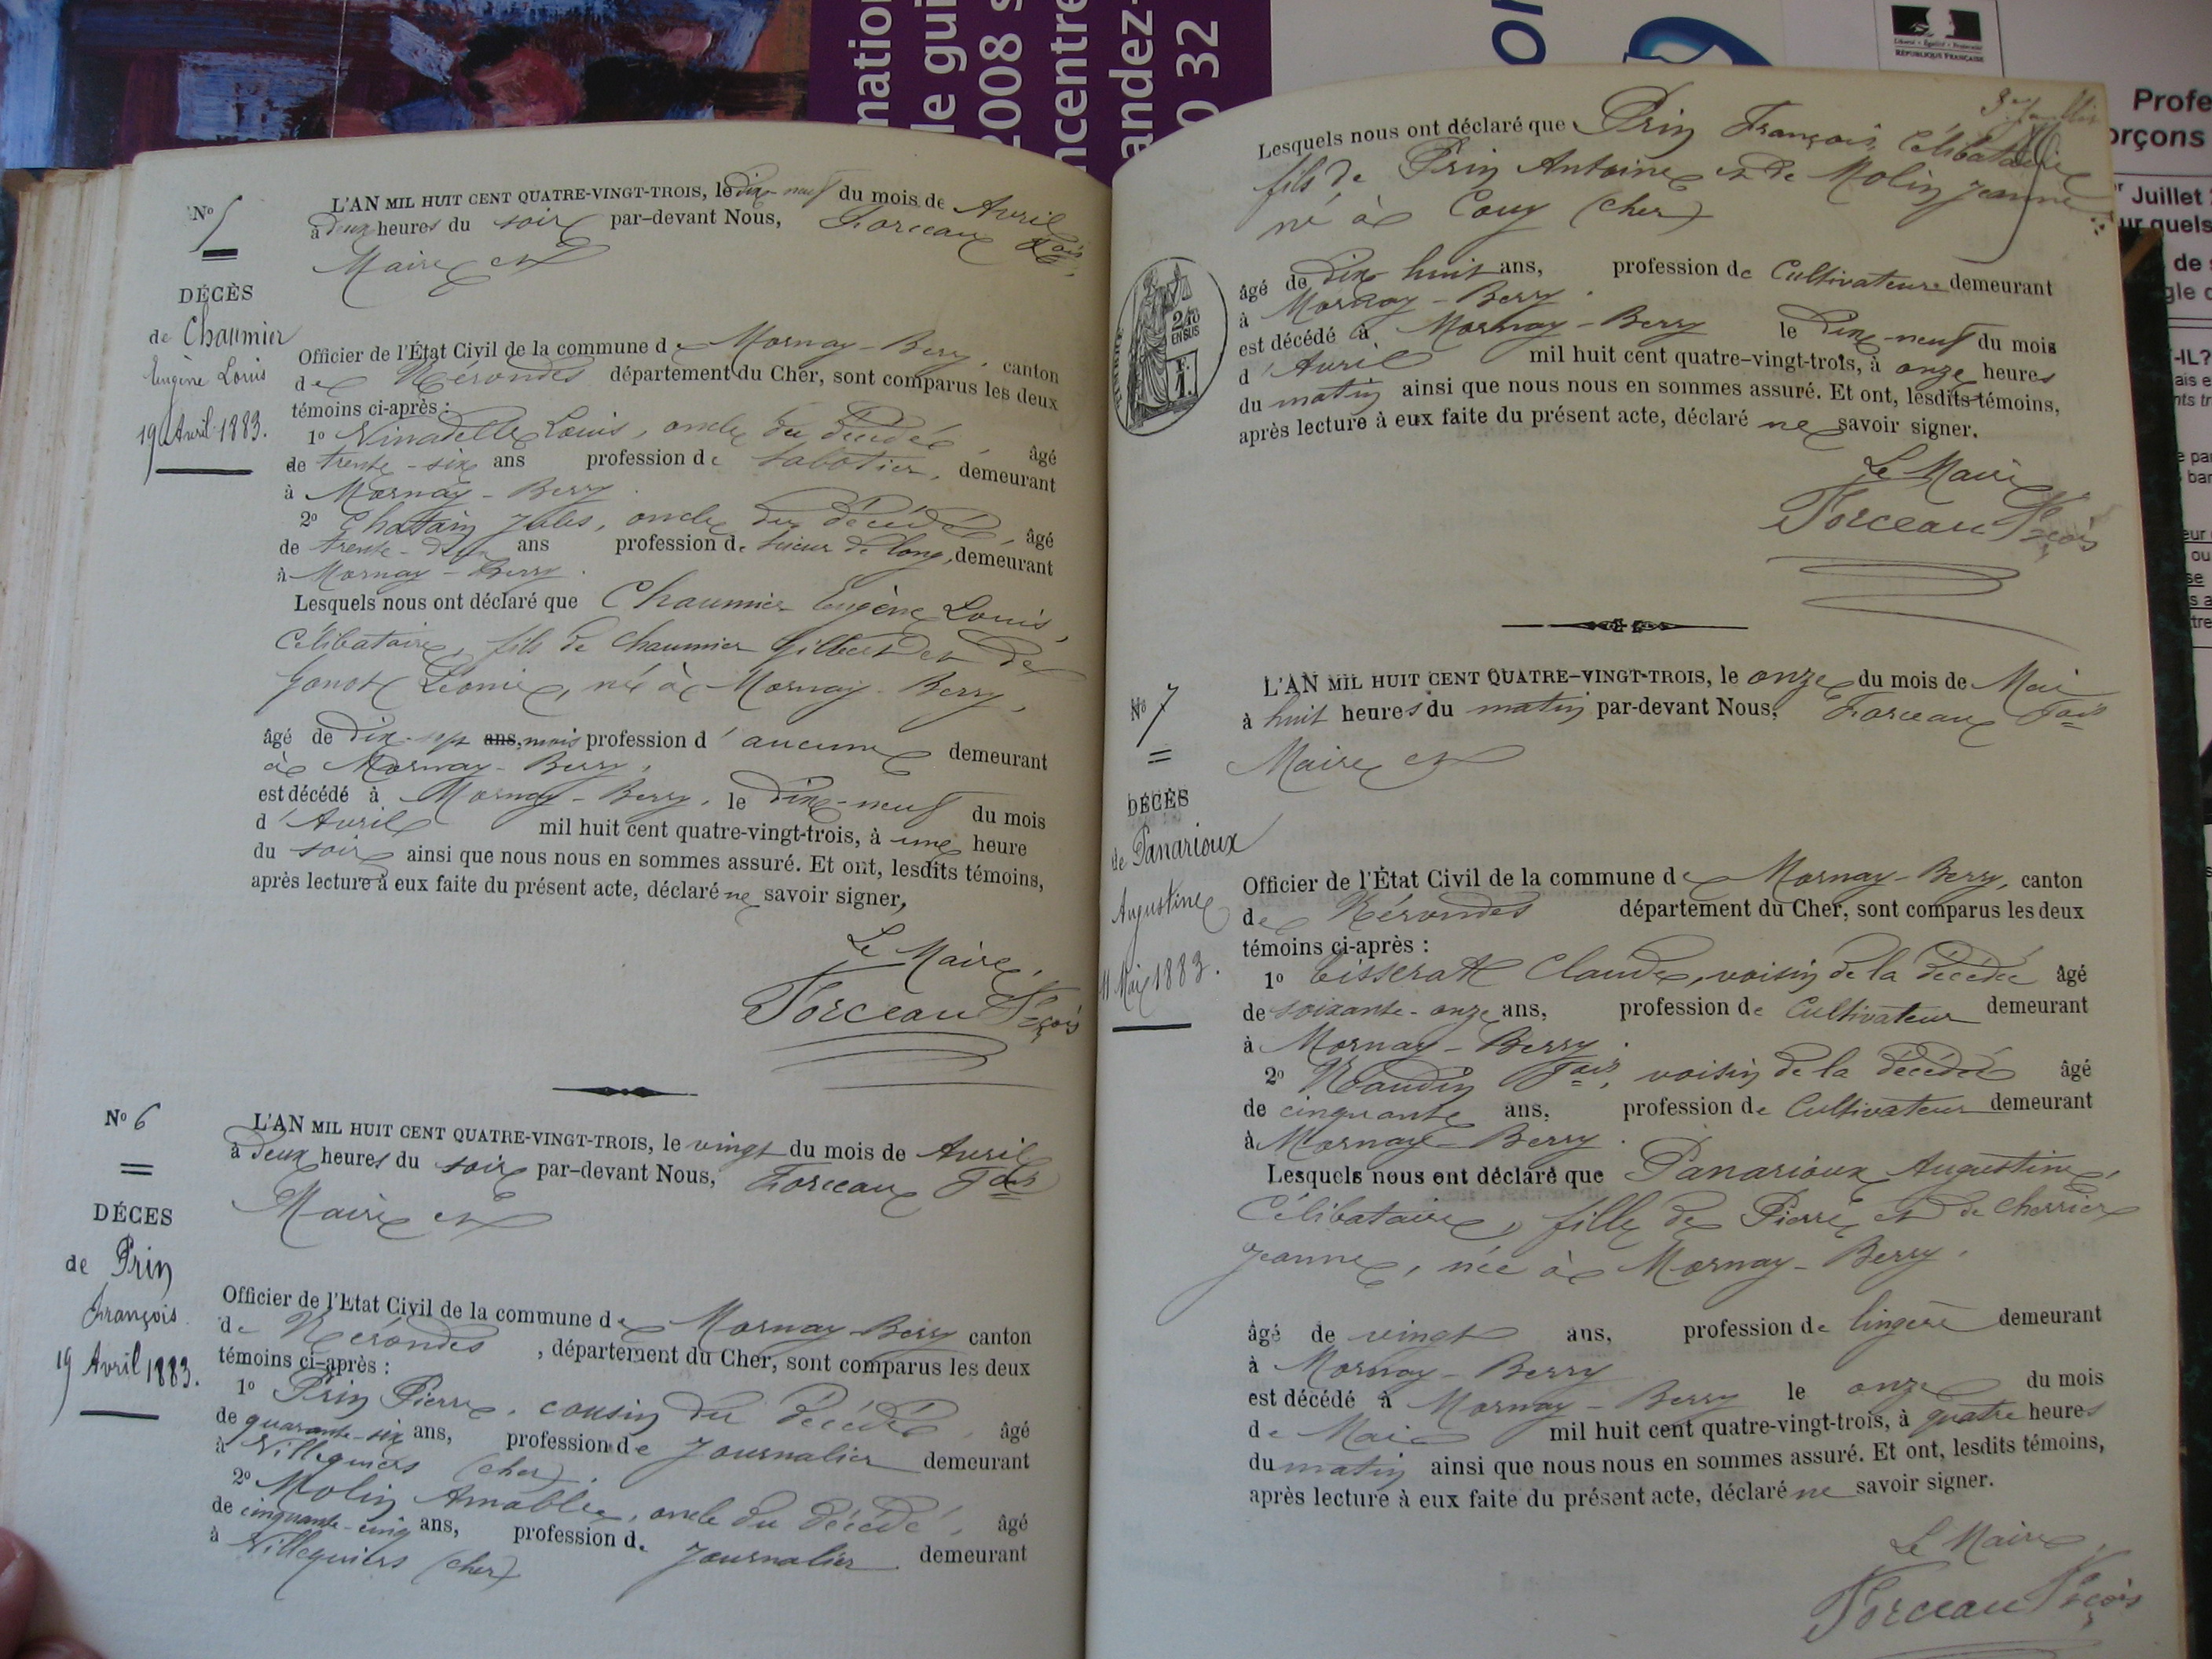 mation
le gui
2008 s
ncentre
andez-
0 32
RÉPUBLIQUE FRANÇAISE
Profe
orçons
Juillet
ur quels
de
gle d
T-IL?
N° 5
DÉCÈS
de Chaumier
Eugène Louis
19 Avril 1883.
L'AN MIL HUIT CENT QUATRE-VINGT-TROIS, le dix-neuf du mois de Avril
à deux heures du soir par-devant Nous, Forceau Fois
Maire et
Officier de l'État Civil de la commune de Mornay-Berry, canton
de Nérondes département du Cher, sont comparus les deux
témoins ci-après :
1° Louis, oncle du décédé, âgé
de trente-six ans profession de sabotier, demeurant
à Mornay-Berry.
2° Chattain Jules, oncle du décédé, âgé
de trente- ans profession de scieur de long, demeurant
à Mornay-Berry.
Lesquels nous ont déclaré que Chaumier Eugène Louis,
Célibataire, fils de Chaumier Gilbert et de
Gonot Léonie, né à Mornay-Berry,
âgé de dix-sept ans, mois profession d'aucune demeurant
à Mornay-Berry,
est décédé à Mornay-Berry, le dix-neuf du mois
d'Avril mil huit cent quatre-vingt-trois, à une heure
du soir ainsi que nous nous en sommes assuré. Et ont, lesdits témoins,
après lecture à eux faite du présent acte, déclaré ne savoir signer,
Le Maire,
Forceau Fçois
N° 6
DÉCES
de Prin
François
19 Avril 1883.
L'AN MIL HUIT CENT QUATRE-VINGT-TROIS, le vingt du mois de Avril
à deux heures du soir par-devant Nous, Forceau Fois
Maire et
Officier de l'Etat Civil de la commune de Mornay-Berry canton
de Nérondes, département du Cher, sont comparus les deux
témoins ci-après :
1° Prin Pierre, cousin du décédé, âgé
de quarante-six ans, profession de Journalier demeurant
à Villequiers (Cher).
2° Molin Amable, oncle du décédé, âgé
de cinquante-cinq ans, profession de Journalier demeurant
à Villequiers (Cher)
Lesquels nous ont déclaré que Prin François, Célibataire
fils de Prin Antoine et de Molin Jeanne
né à Couy (Cher)
2/10
EN SUS
âgé de dix huit ans, profession de Cultivateur demeurant
à Mornay-Berry.
est décédé à Mornay-Berry le dix-neuf du mois
d'Avril mil huit cent quatre-vingt-trois, à onze heures
du matin ainsi que nous nous en sommes assuré. Et ont, lesdits témoins,
après lecture à eux faite du présent acte, déclaré ne savoir signer.
Le Maire
Forceau Fçois
N° 7
DÉCÈS
de Panarioux
Augustine
11 Mai 1883.
L'AN MIL HUIT CENT QUATRE-VINGT-TROIS, le onze du mois de Mai
à huit heures du matin par-devant Nous, Forceau Fois
Maire et
Officier de l'État Civil de la commune de Mornay-Berry, canton
de Nérondes département du Cher, sont comparus les deux
témoins ci-après :
1° Bisserat Claude, voisin de la décédée âgé
de soixante-onze ans, profession de Cultivateur demeurant
à Mornay-Berry.
2° Naudin Fois, voisin de la décédée âgé
de cinquante ans, profession de Cultivateur demeurant
à Mornay-Berry.
Lesquels nous ont déclaré que Panarioux Augustine,
Célibataire, fille de Pierre et de Cherrier
Jeanne, née à Mornay-Berry.
âgé de vingt ans, profession de lingère demeurant
à Mornay-Berry
est décédé à Mornay-Berry le onze du mois
de Mai mil huit cent quatre-vingt-trois, à quatre heures
du matin ainsi que nous nous en sommes assuré. Et ont, lesdits témoins,
après lecture à eux faite du présent acte, déclaré ne savoir signer.
Le Maire,
Forceau Fçois